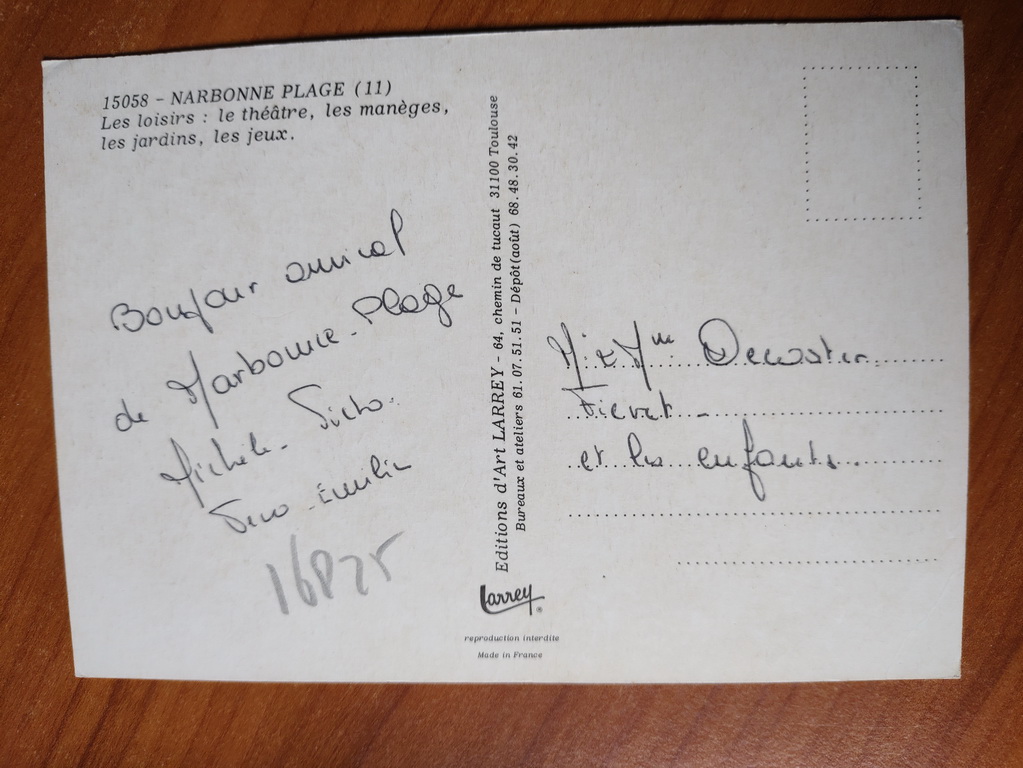 15058 - NARBONNE PLAGE (11)
Les loisirs : le théâtre, les manèges,
les jardins, les jeux.
Bonjour amical
de Narbonne-Plage
Michele-
Emilie
Editions d'Art LARREY - 64, chemin de tucaut 31100 Toulouse
Bureaux et ateliers 61.07.51.51 - Dépôt(août) 68.48.30.42
Larrey
reproduction interdite
Made in France
M. et Mme Dewaster
Fievet -
et les enfants.